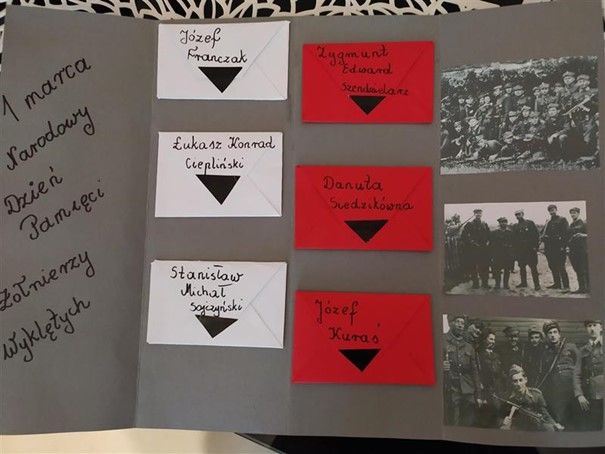 1 marca
Narodowy
Dzień
Pamięci
Żołnierzy
Wyklętych
Józef
Franczak
Łukasz Konrad
Ciepliński
Stanisław
Michał
Sojczyński
Zygmunt
Edward
Szendzielarz
Danuta
Siedzikówna
Józef
Kuraś